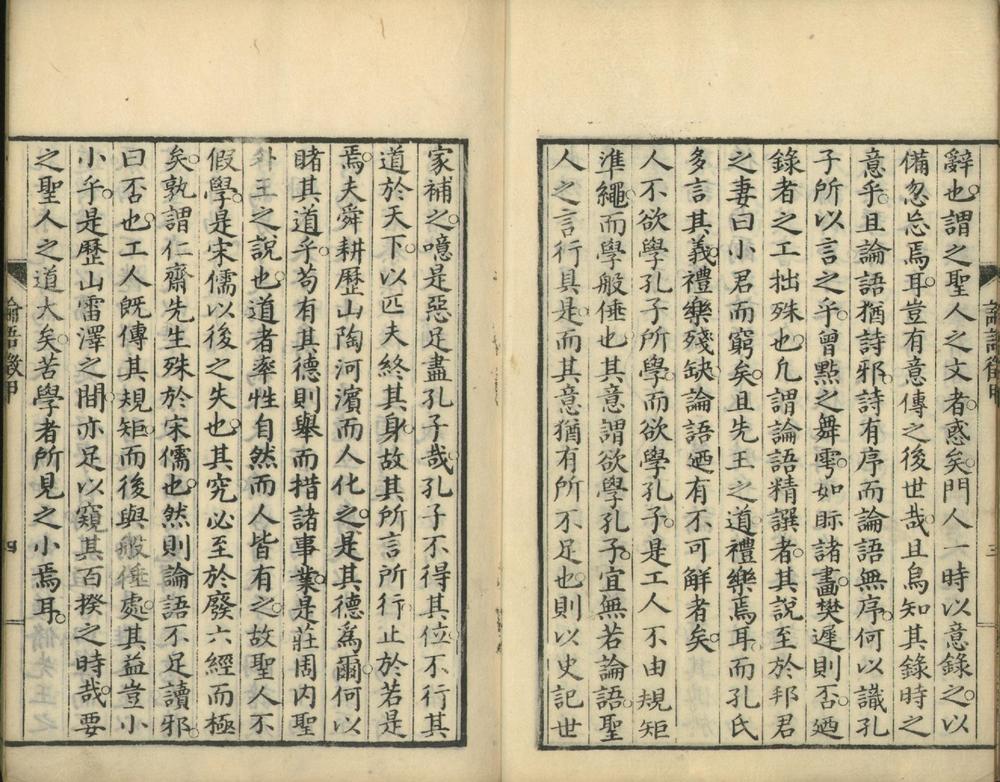 辭也。謂之聖人之文者。惑矣。門人一時以意錄之。以
備忽忘焉耳。豈有意傳之後世哉。且烏知其錄時之
意乎。且論語猶詩邪。詩有序而論語無序。何以識孔
子所以言之乎。曾點之舞雩。如眎諸畫。樊遲則否。廼
錄者之工拙殊也。凡謂論語精譔者。其說至於邦君
之妻曰小君而窮矣。且先王之道。禮樂焉耳。而孔氏
多言其義。禮樂殘缺。論語廼有不可解者矣。
人不欲學孔子所學。而欲學孔子。是工人不由規矩
準繩。而學般倕也。其意謂欲學孔子。宜無若論語。聖
人之言行具是。而其意猶有所不足也。則以史記世
家補之。噫是惡足盡孔子哉。孔子不得其位。不行其
道於天下。以匹夫終其身。故其所言所行。止於若是
焉。夫舜耕歷山陶河濱而人化之。是其德爲爾。何以
睹其道乎。苟有其德則舉而措諸事業。是莊周內聖
外王之說也。道者率性自然而人皆有之。故聖人不
假學。是宋儒以後之失也。其究必至於廢六經而極
矣。孰謂仁齋先生殊於宋儒也。然則論語不足讀邪。
曰否也。工人旣傳其規矩而後與般倕處。其益豈小
小乎。是歷山雷澤之間。亦足以窺其百揆之時哉。要
之聖人之道大矣。苦學者所見之小焉耳。
論語徵甲
三
論語徵甲
四